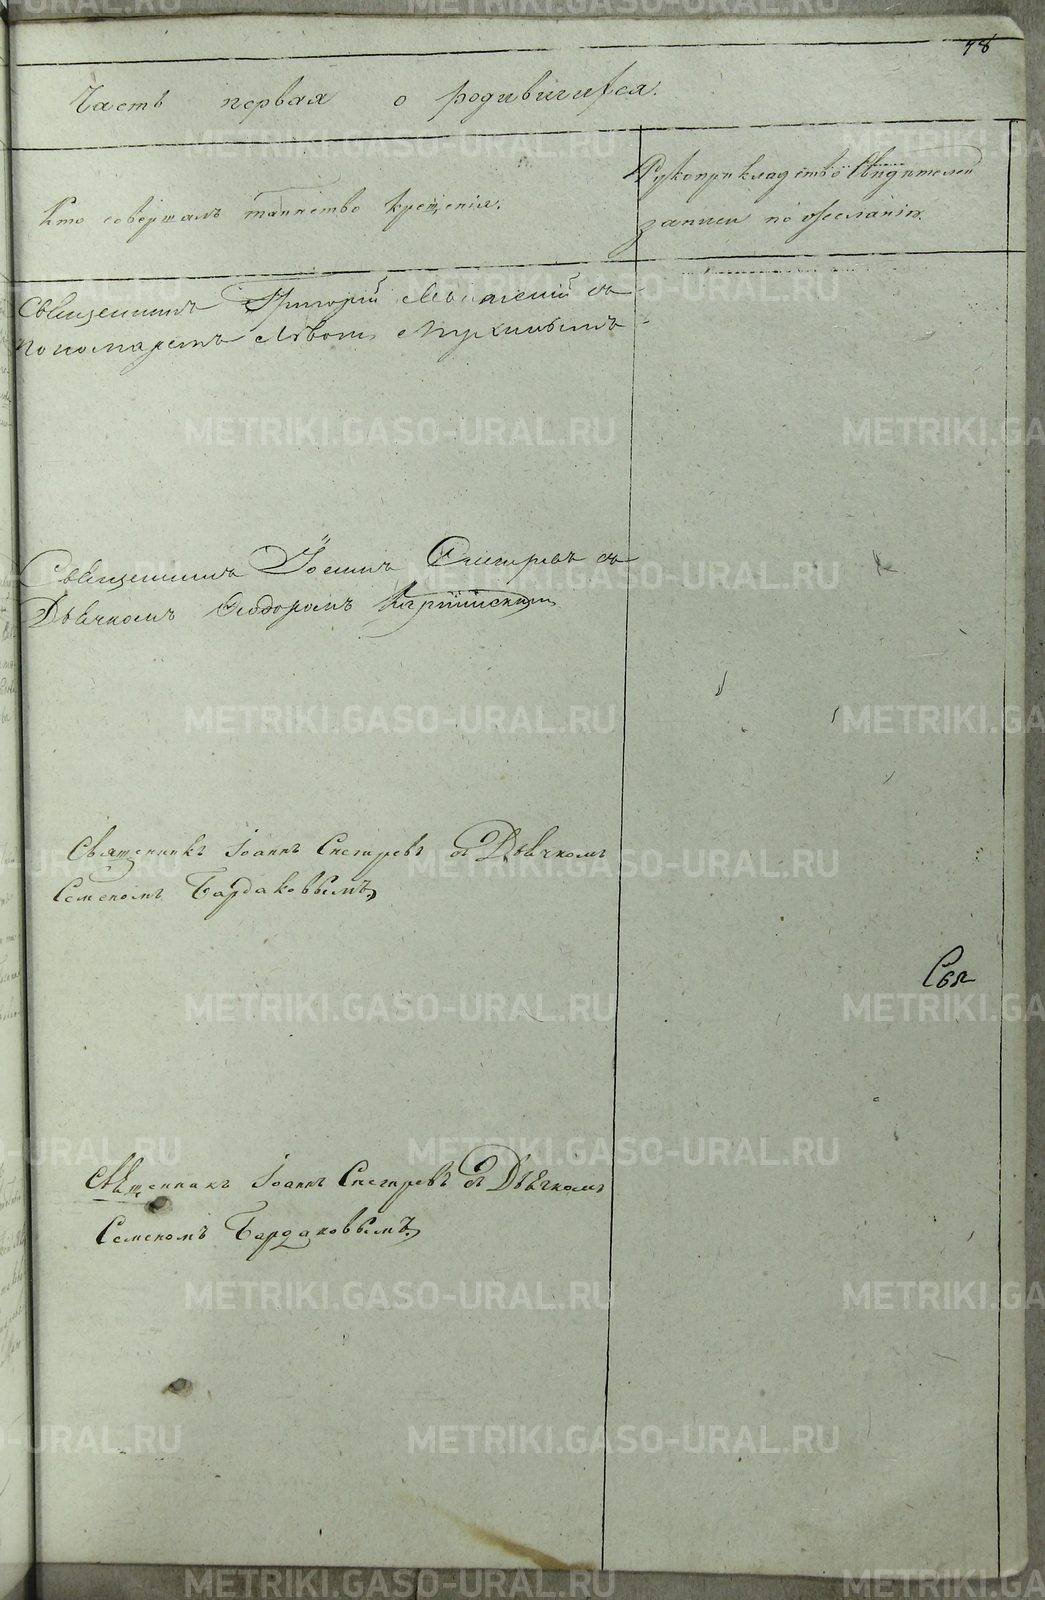 78
Часть первая о родившихся.
Кто совершалъ таинство крещенія.
Рукоприкладство свидѣтелей
записи по желанію.
Священникъ Григорій съ
пономаремъ
Священникъ Іоаннъ Снегиревъ съ
Дьячкомъ Ѳеодоромъ
Священникъ Іоаннъ Снегиревъ съ Дьячкомъ
Семеномъ Бардаковымъ
Свя
Священникъ Іоаннъ Снегиревъ съ Дьячкомъ
Семеномъ Бардаковымъ
METRIKI.GASO-URAL.RU